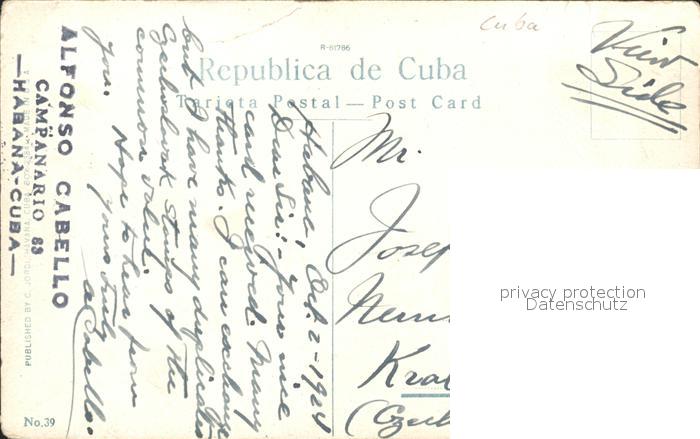 Cuba
View
Side
R-61786
Republica de Cuba
Tarjeta Postal — Post Card
Habana, Oct. 2-1924
Dear Sir:- Your nice
card received. Many
thanks. I can exchange
but I have many duplicates
Czechoslovak stamps of the
common value.
Hope to hear from
you.
Yours truly
A Cabello.
Mr.
Josep
Nem
Kral
(Czech
ALFONSO CABELLO
CAMPANARIO 88
—HABANA-CUBA—
PUBLISHED BY C. JORDI, HAVANA, CUBA
No. 39
privacy protection
Datenschutz